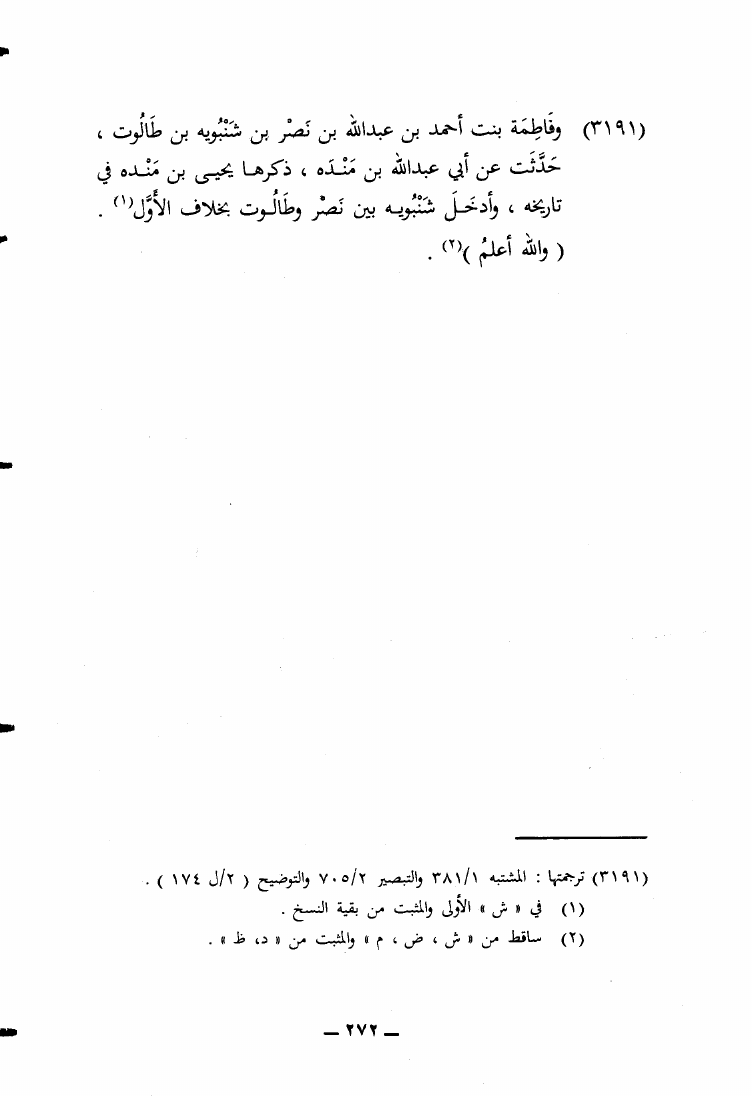 (٣١٩١) وفَاطِمَة بنت أحمد بن عبدالله بن نَصْر بن شَنْبُويه بن طَالُوت ،
حَدَّثَت عن أبي عبدالله بن مَنْدَه ، ذكرها يحيى بن مَنْده في
تاريخه ، وأدخَلَ شَنْبُويه بين نَصْر وطَالُوت بخلاف الأَوَّل(١) .
( والله أعلمُ )(٢) .
(٣١٩١) ترجمتها : المشتبه ٣٨١/١ والتبصير ٧٠٥/٢ والتوضيح ( ٢/ل ١٧٤ ) .
(١) في « ش » الأولى والمثبت من بقية النسخ .
(٢) ساقط من « ش ، ض ، م » والمثبت من « د، ظ » .
— ٢٧٢ —